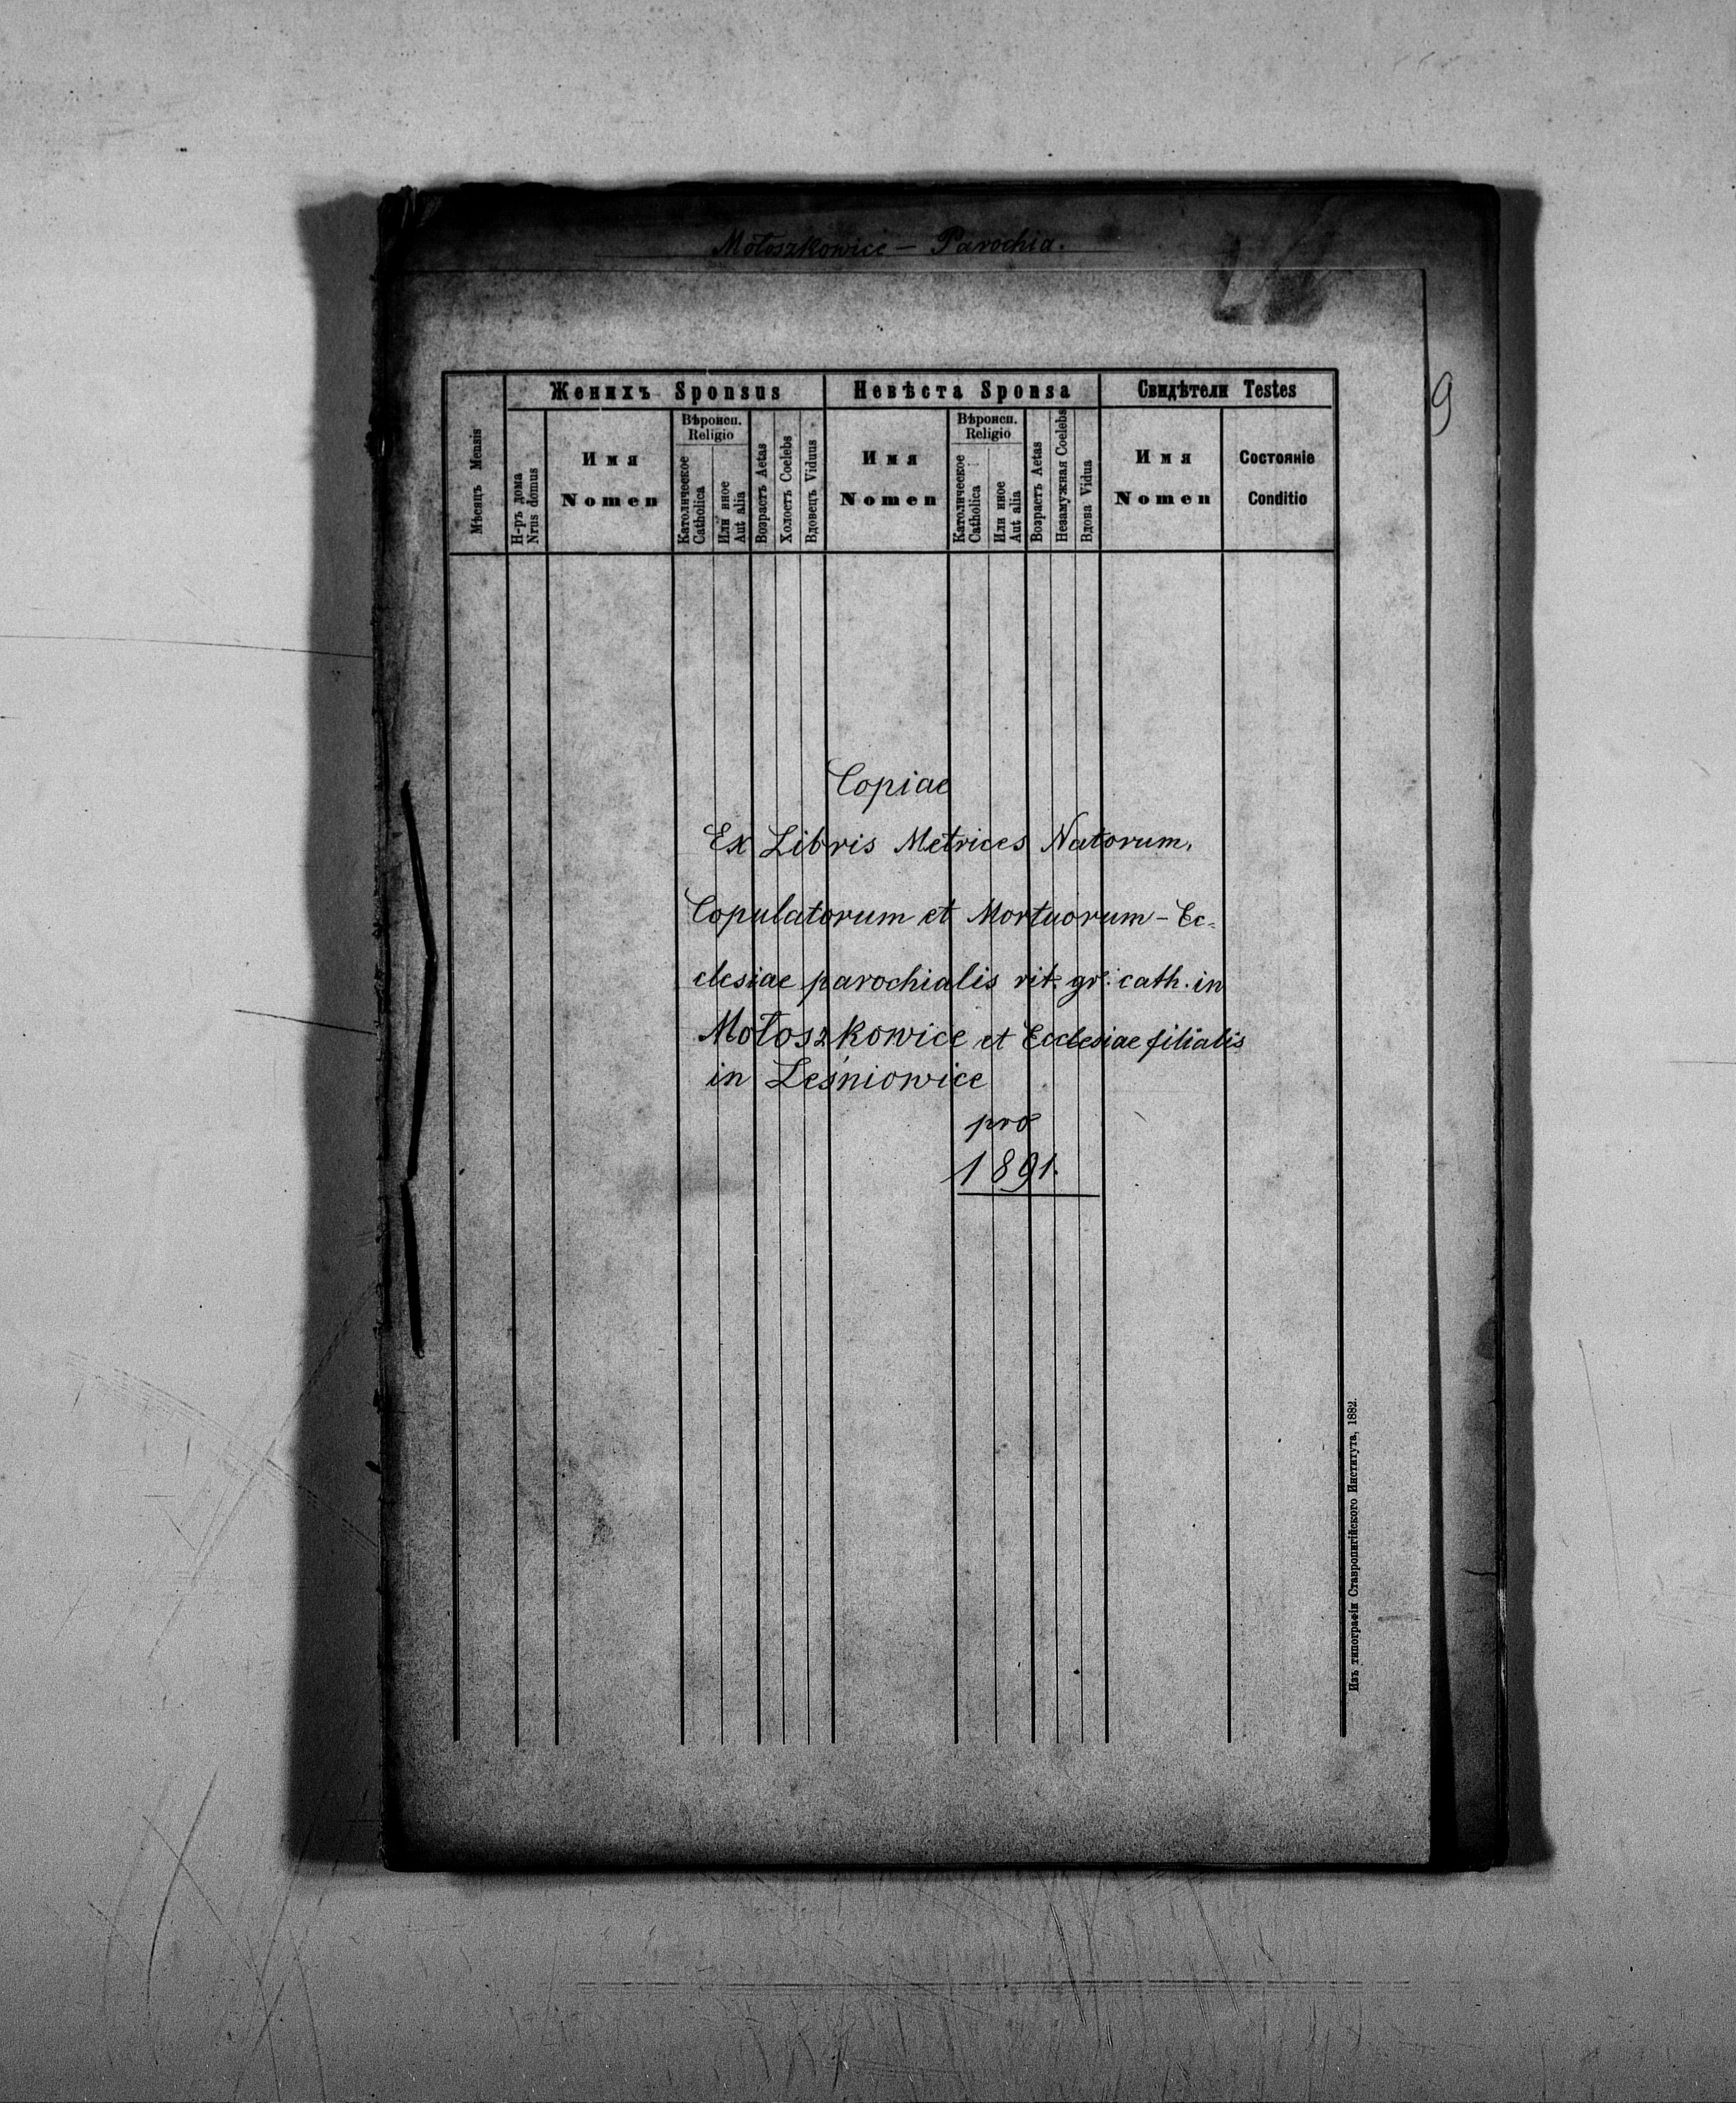 Mołoszkowice – Parochia.
9
Женихъ Sponsus
Невѣста Sponsa
Свидѣтели Testes
Мѣсяцъ Mensis
Н-ръ дома
Nrus domus
Имя
Nomen
Вѣроисп.
Religio
Католическое
Catholica
Или иное
Aut alia
Возрастъ Aetas
Холостъ Coelebs
Вдовецъ Viduus
Имя
Nomen
Вѣроисп.
Religio
Католическое
Catholica
Или иное
Aut alia
Возрастъ Aetas
Незамужная Coelebs
Вдова Vidua
Имя
Nomen
Состояніе
Conditio
Copiae
Ex Libris Metrices Natorum,
Copulatorum et Mortuorum – Ec-
clesiae parochialis rit: gr: cath. in
Mołoszkowice et Ecclesiae filialis
in Leśniowice
pro
1891.
Изъ типографіи Ставропигійского Института, 1882.